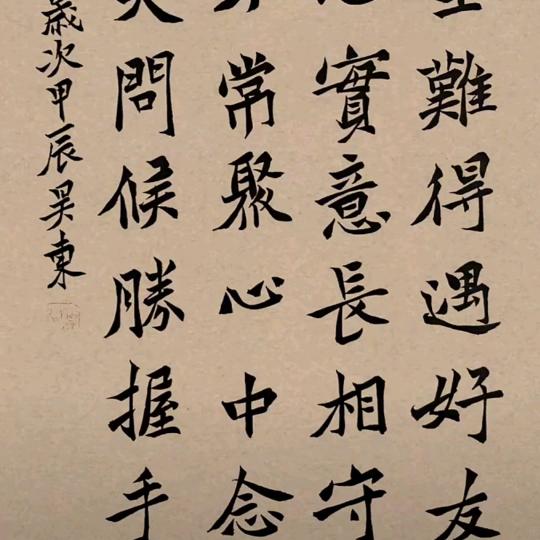 難得遇好友
實意長相守
常聚心中念
問候勝握手
歲次甲辰吴東